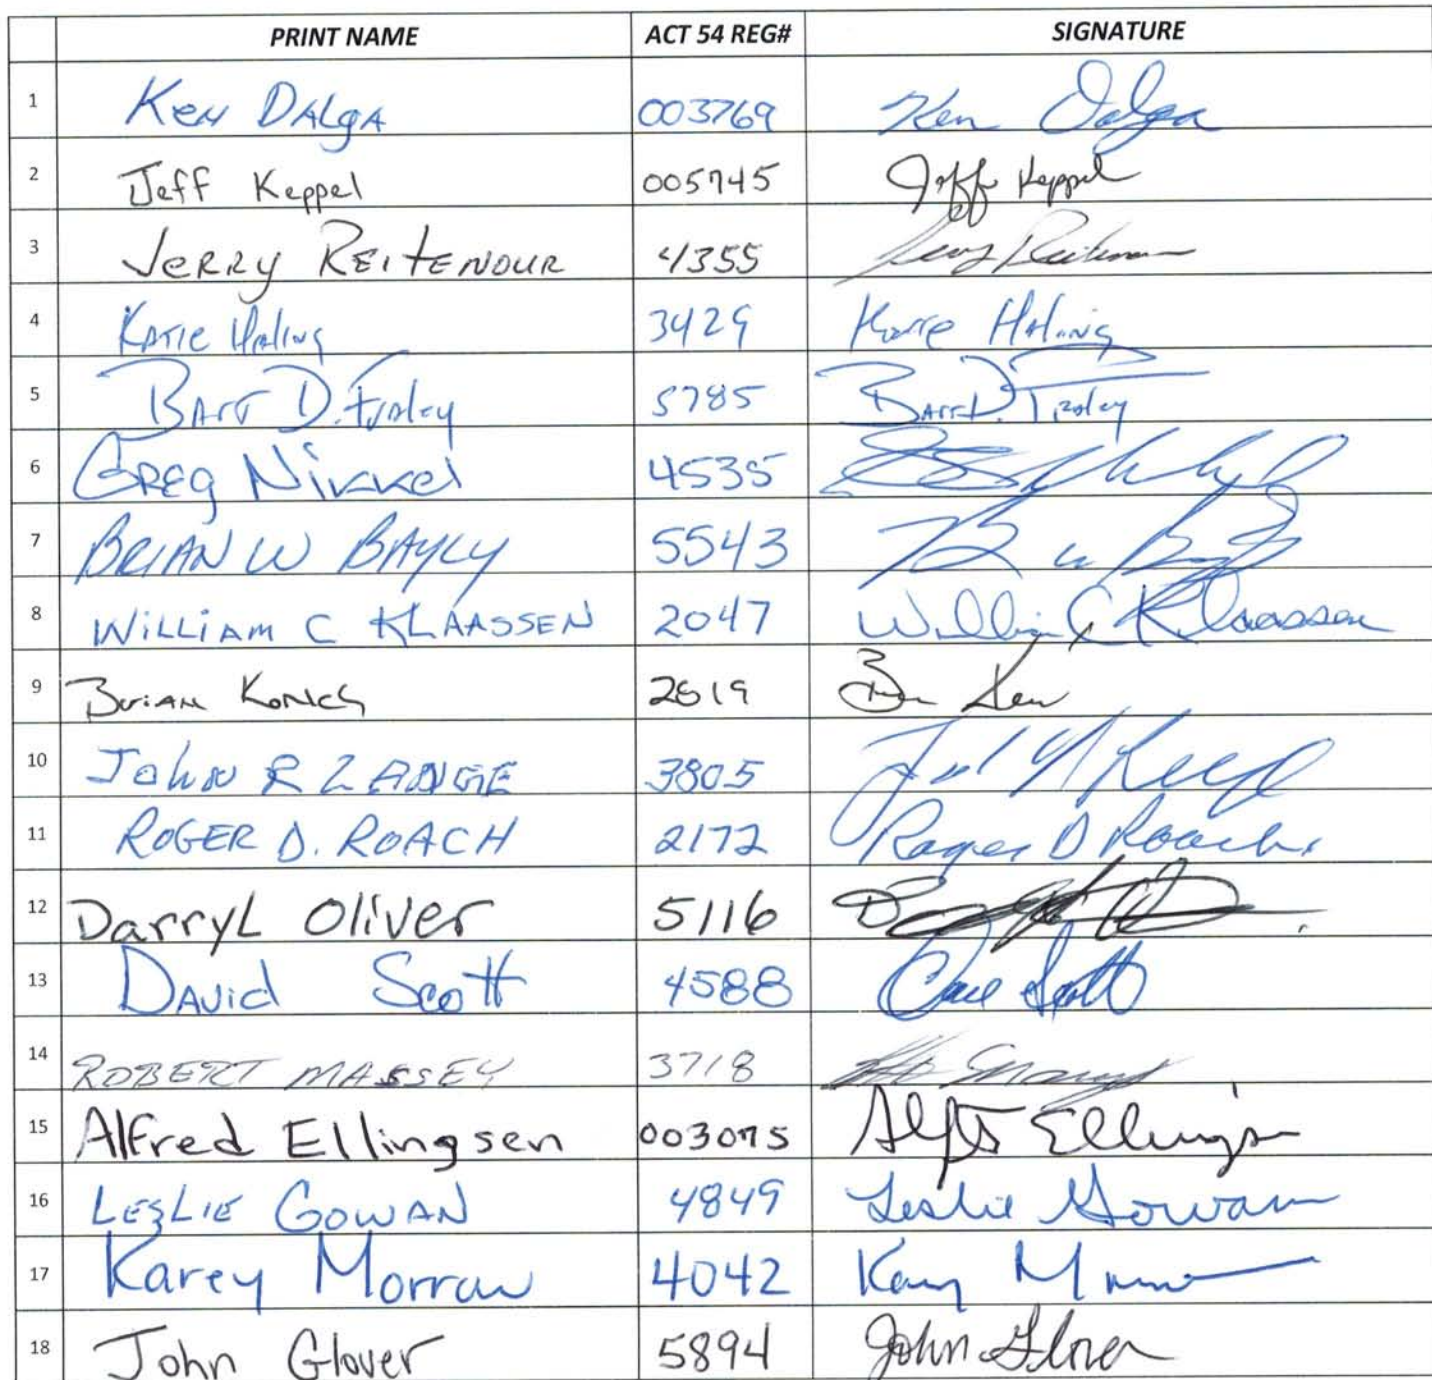 PRINT NAME ACT 54 REG# SIGNATURE
1 Ken DALgA 003769 Ken Dalga
2 Jeff Keppel 005745 Jeff Keppel
3 JERRY REITENOUR 4355
4 Katie Haling 3429 Katie Haling
5 Bart D. 5785 Bart D.
6 GREG Nikkel 4535
7 BRIAN W BAYLY 5543
8 WILLIAM C KLAASSEN 2047 William C Klaassen
9 BRIAN 2819
10 JOHN R LANGE 3805
11 ROGER D. ROACH 2172 Roger D Roach
12 DarryL Oliver 5116
13 DAVid Scott 4588 Dave Scott
14 ROBERT MASSEY 3718
15 Alfred Ellingsen 003075 Ellingsen
16 LESLIE GOWAN 4849 Leslie Gowan
17 Karey Morrow 4042
18 John Glover 5894 John Glover